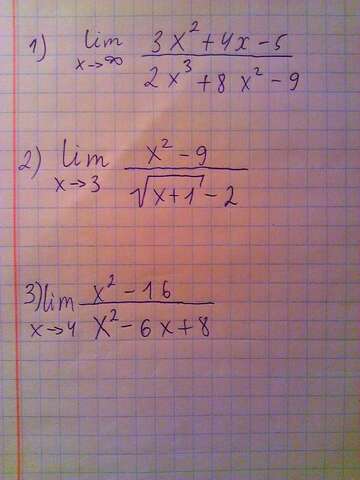 1) lim x→∞ (3x² + 4x - 5) / (2x³ + 8x² - 9)
2) lim x→3 (x² - 9) / (√(x+1) - 2)
3) lim x→4 (x² - 16) / (x² - 6x + 8)